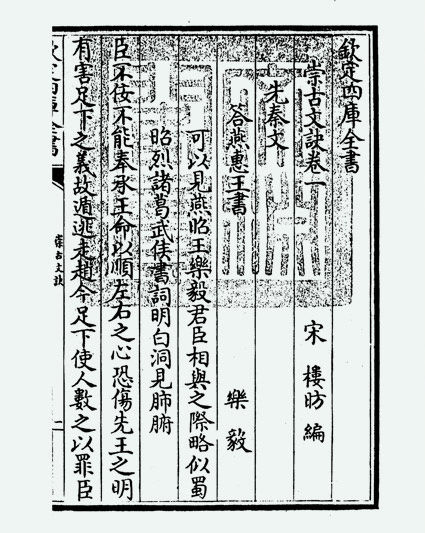 欽定四庫全書
崇古文訣卷一
宋 樓昉 編
先秦文
答燕惠王書 樂毅
可以見燕昭王樂毅君臣相與之際略似蜀
昭烈諸葛武侯書詞明白洞見肺腑
臣不佞不能奉承王命以順左右之心恐傷先王之明
有害足下之義故遁逃走趙今足下使人數之以罪臣
崇古文訣